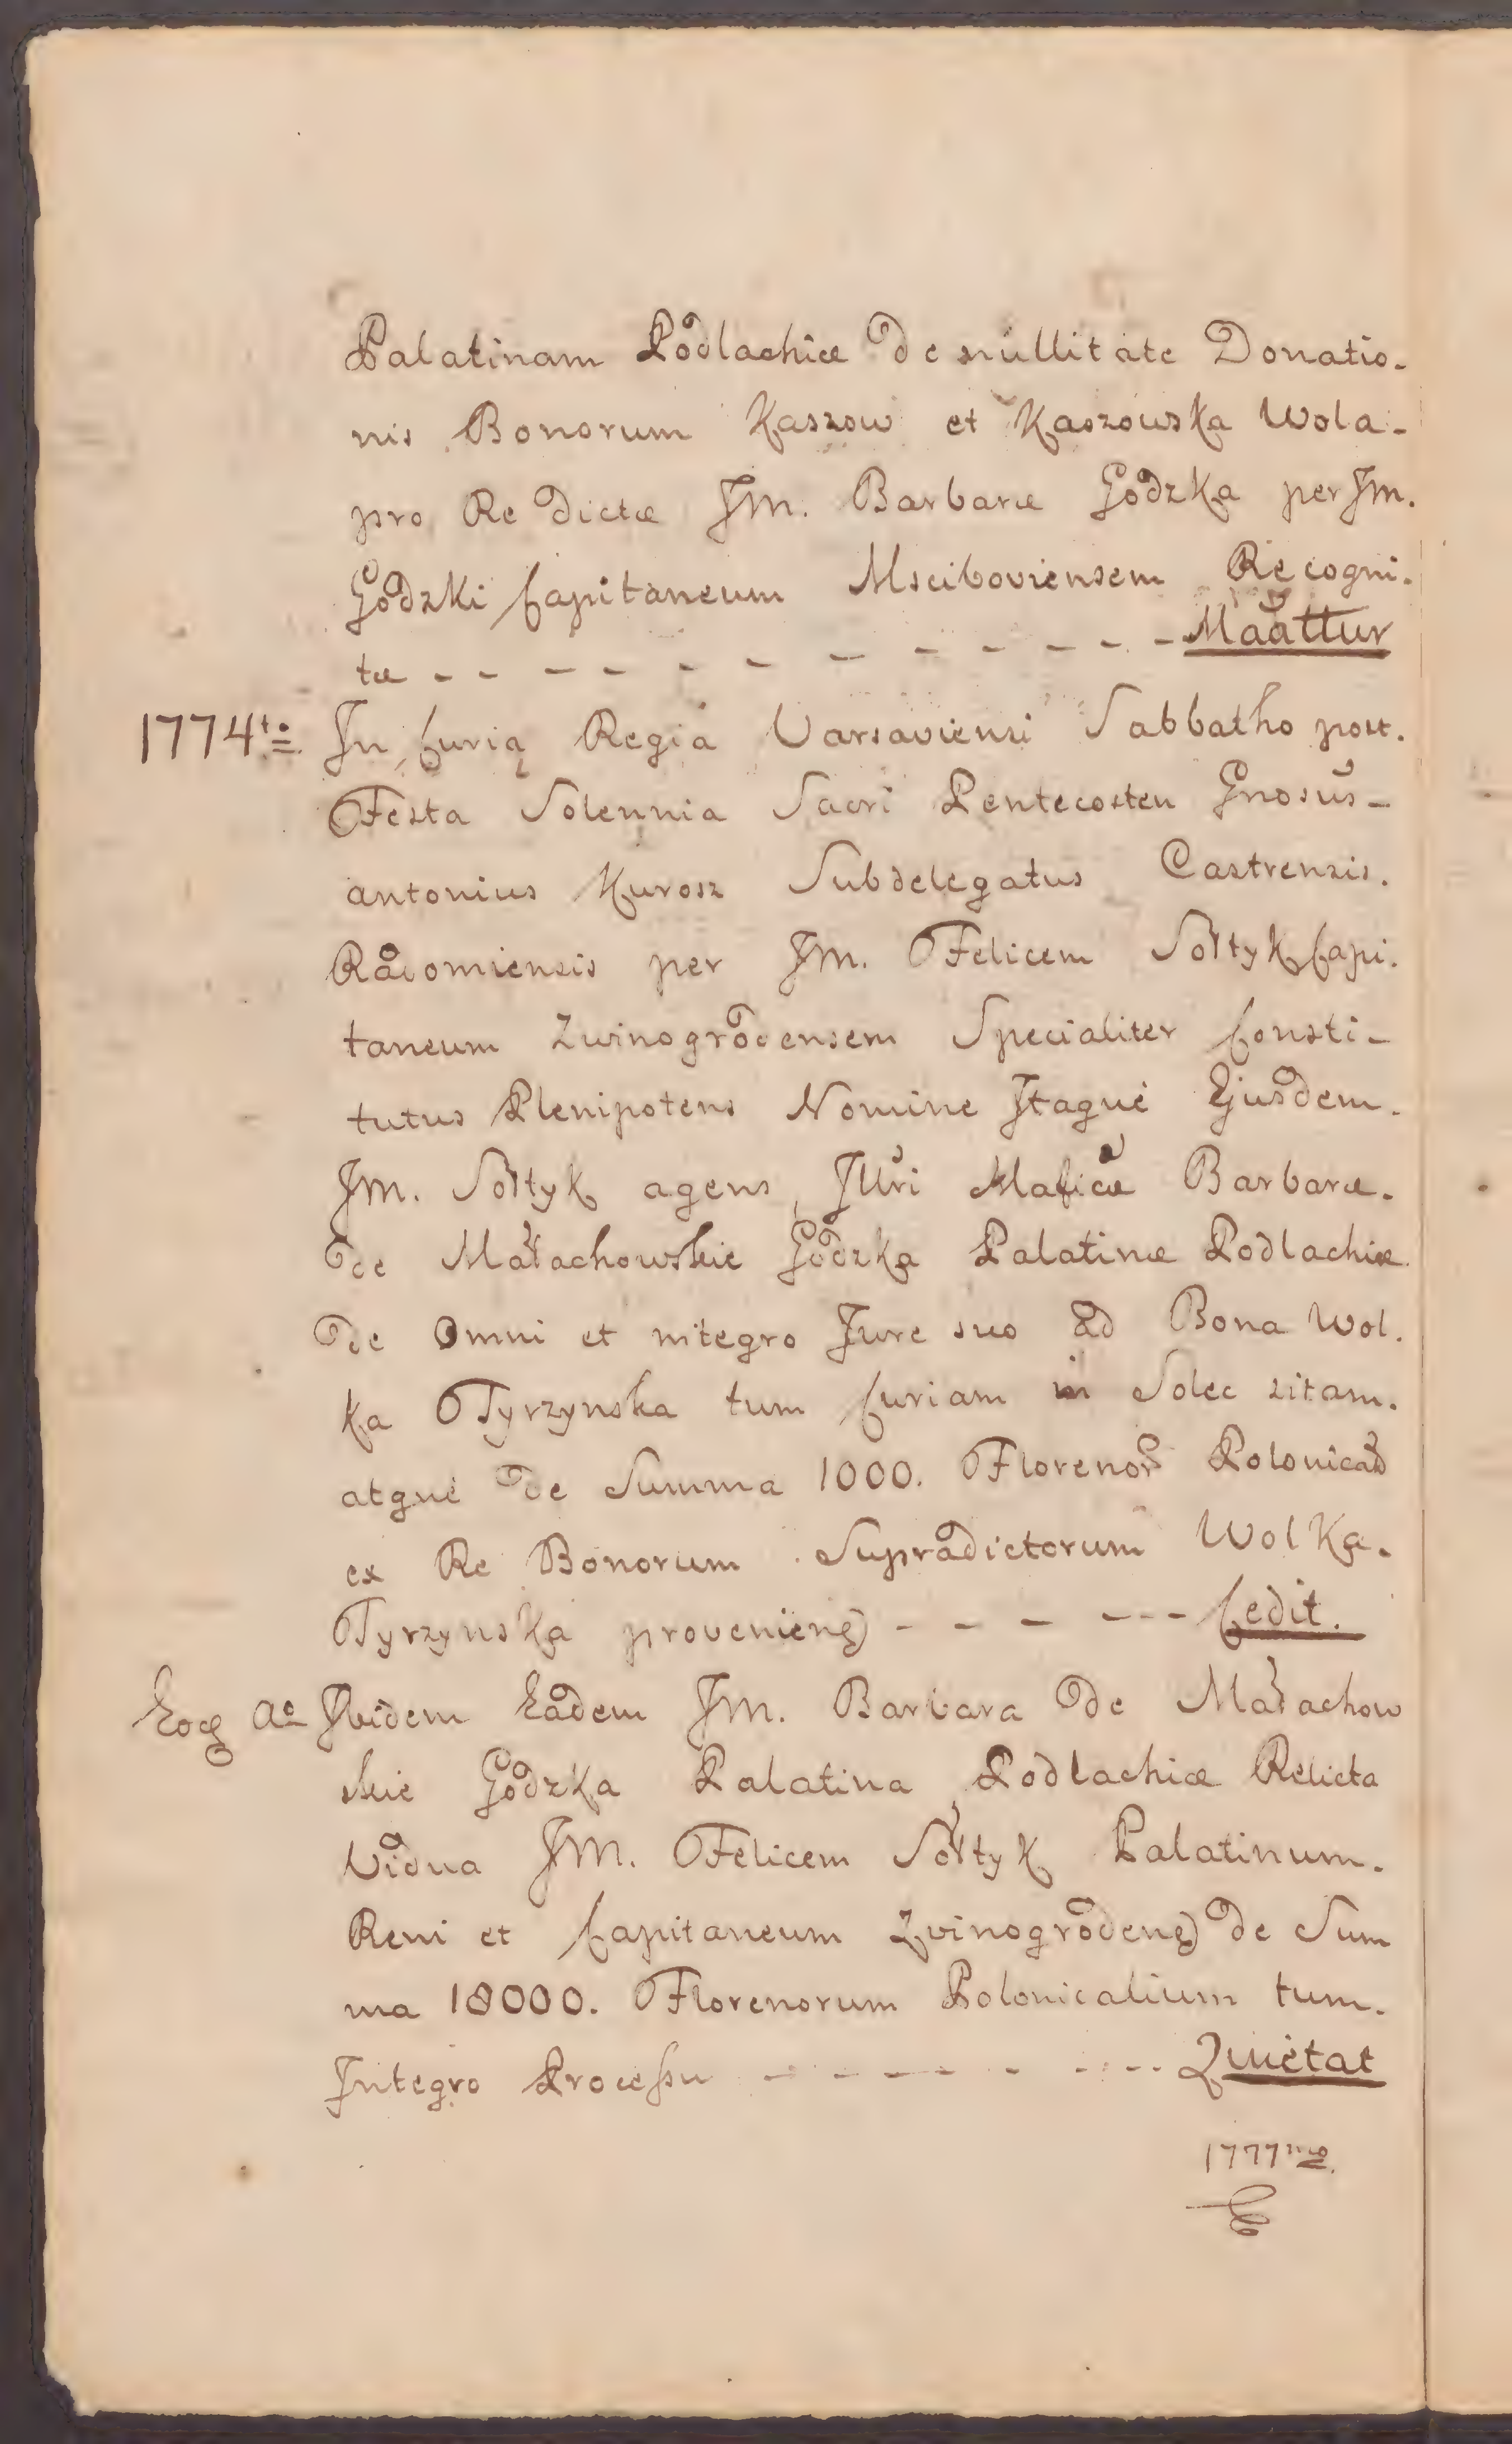 Palatinam Podlachiæ de nullitate Donatio-
nis Bonorum Kaszow et Kaszowska Wola-
pro Re dictæ JM. Barbaræ Godzka per JM.
Godzki Capitaneum Msciboviensem Recogni-
tæ - - - - - - - - - - - - Maattur
1774to In Curią Regia Varsaviensi Sabbatho post.
Festa Solennia Sacri Pentecosten Gnosus-
antonius Kurosz Subdelegatus Castrensis.
Radomiensis per JM. Felicem Sołtyk Capi-
taneum Zwinogrodensem Specialiter Consti-
tutus Plenipotens Nomine Itaque Ejusdem.
JM. Sołtyk agens Barbaræ.
de Małachowskie Godzka Palatinæ Podlachiæ
de Omni et integro Jure suo ad Bona Wol.
ka Tyrzynska tum Curiam in Solec sitam.
atque de Summa 1000. Florenor Polonical
ex Re Bonorum Supradictorum Wolka.
Tyrzynska proveniens - - - - - - Cedit.
Eoq Ao Ibidem Eadem JM. Barbara de Małachow
skie Godzka Palatina Podlachiæ Relicta
Vidua JM. Felicem Sołtyk Palatinum.
Reni et Capitaneum Zvinogrodens de Sum
ma 18000. Florenorum Polonicalium tum.
Integro Processu - - - - - - - - Quietat
1777mo